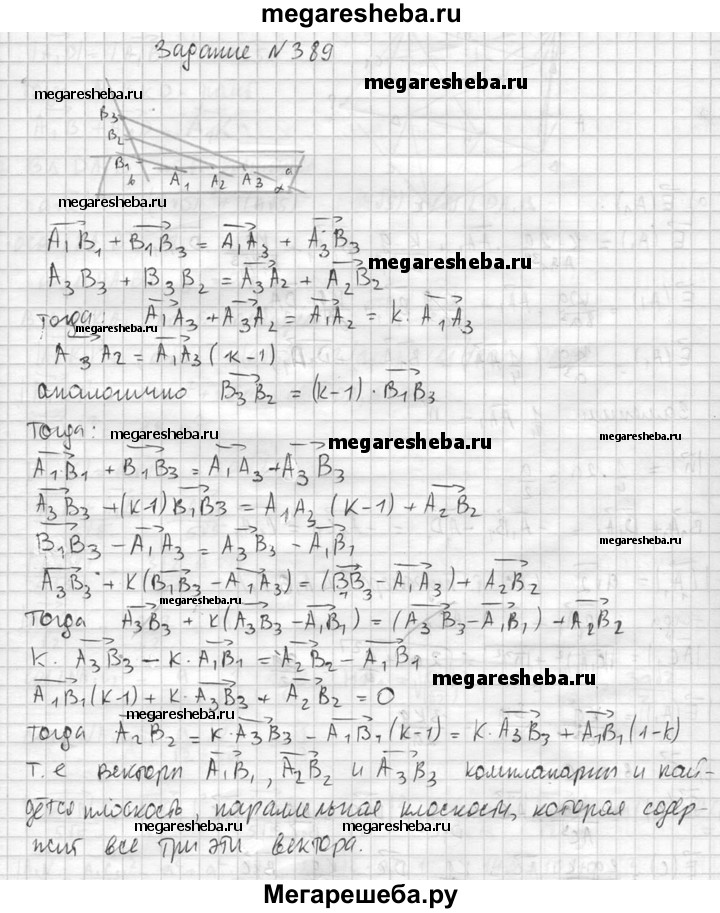 megaresheba.ru
Задание №389
megaresheba.ru
megaresheba.ru
B3
B2
B1
b A1 A2 A3 a
α
megaresheba.ru
A1B1 + B1B3 = A1A3 + A3B3
megaresheba.ru
A3B3 + B3B2 = A3A2 + A2B2
тогда: A1A3 + A3A2 = A1A2 = k · A1A3
megaresheba.ru
A3A2 = A1A3 (k-1)
аналогично B3B2 = (k-1) · B1B3
Тогда: megaresheba.ru megaresheba.ru megaresheba.ru
A1B1 + B1B3 = A1A3 + A3B3
A3B3 + (k-1) B1B3 = A1A3 (k-1) + A2B2
B1B3 - A1A3 = A3B3 - A1B1
megaresheba.ru
A3B3 + k(B1B3 - A1A3) = (B1B3 - A1A3) + A2B2
megaresheba.ru
Тогда A3B3 + k(A3B3 - A1B1) = (A3B3 - A1B1) + A2B2
k · A3B3 - k · A1B1 = A2B2 - A1B1
megaresheba.ru
A1B1(k-1) + k · A3B3 + A2B2 = 0
megaresheba.ru
тогда A2B2 = k · A3B3 - A1B1 (k-1) = k · A3B3 + A1B1 (1-k)
т.е векторы A1B1, A2B2 и A3B3 компланарны и най-
дется плоскость, параллельная плоскости, которая содер-
megaresheba.ru megaresheba.ru
жит все три эти вектора.
Мегарешеба.ру